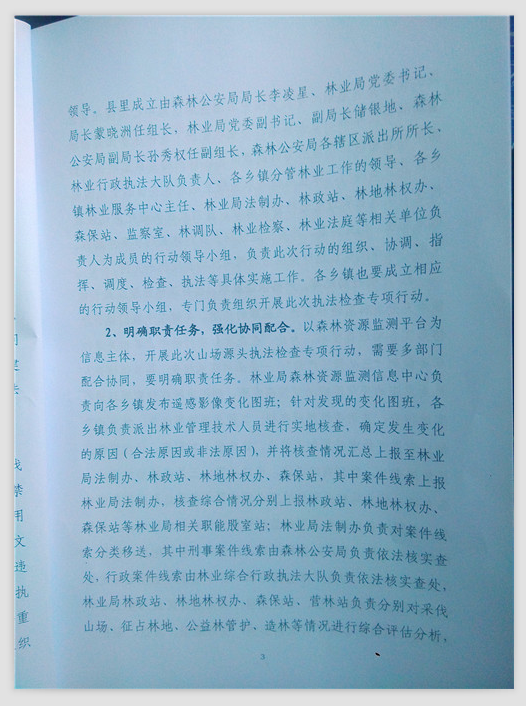 领导。县里成立由森林公安局局长李凌星、林业局党委书记、
局长蒙晓洲任组长，林业局党委副书记、副局长储银地、森林
公安局副局长孙秀权任副组长，森林公安局各辖区派出所所长、
林业行政执法大队负责人、各乡镇分管林业工作的领导、各乡
镇林业服务中心主任、林业局法制办、林政站、林地林权办、
森保站、监察室、林调队、林业检察、林业法庭等相关单位负
责人为成员的行动领导小组，负责此次行动的组织、协调、指
挥、调度、检查、执法等具体实施工作。各乡镇也要成立相应
的行动领导小组，专门负责组织开展此次执法检查专项行动。
2、明确职责任务，强化协同配合。以森林资源监测平台为
信息主体，开展此次山场源头执法检查专项行动，需要多部门
配合协同，要明确职责任务。林业局森林资源监测信息中心负
责向各乡镇发布遥感影像变化图班；针对发现的变化图班，各
乡镇负责派出林业管理技术人员进行实地核查，确定发生变化
的原因（合法原因或非法原因），并将核查情况汇总上报至林业
局法制办、林政站、林地林权办、森保站，其中案件线索上报
林业局法制办，核查综合情况分别上报林政站、林地林权办、
森保站等林业局相关职能股室站；林业局法制办负责对案件线
索分类移送，其中刑事案件线索由森林公安局负责依法核实查
处，行政案件线索由林业综合行政执法大队负责依法核实查处，
林业局林政站、林地林权办、森保站、营林站负责分别对采伐
山场、征占林地、公益林管护、造林等情况进行综合评估分析，
3
禁
用
文
违
执
重
织